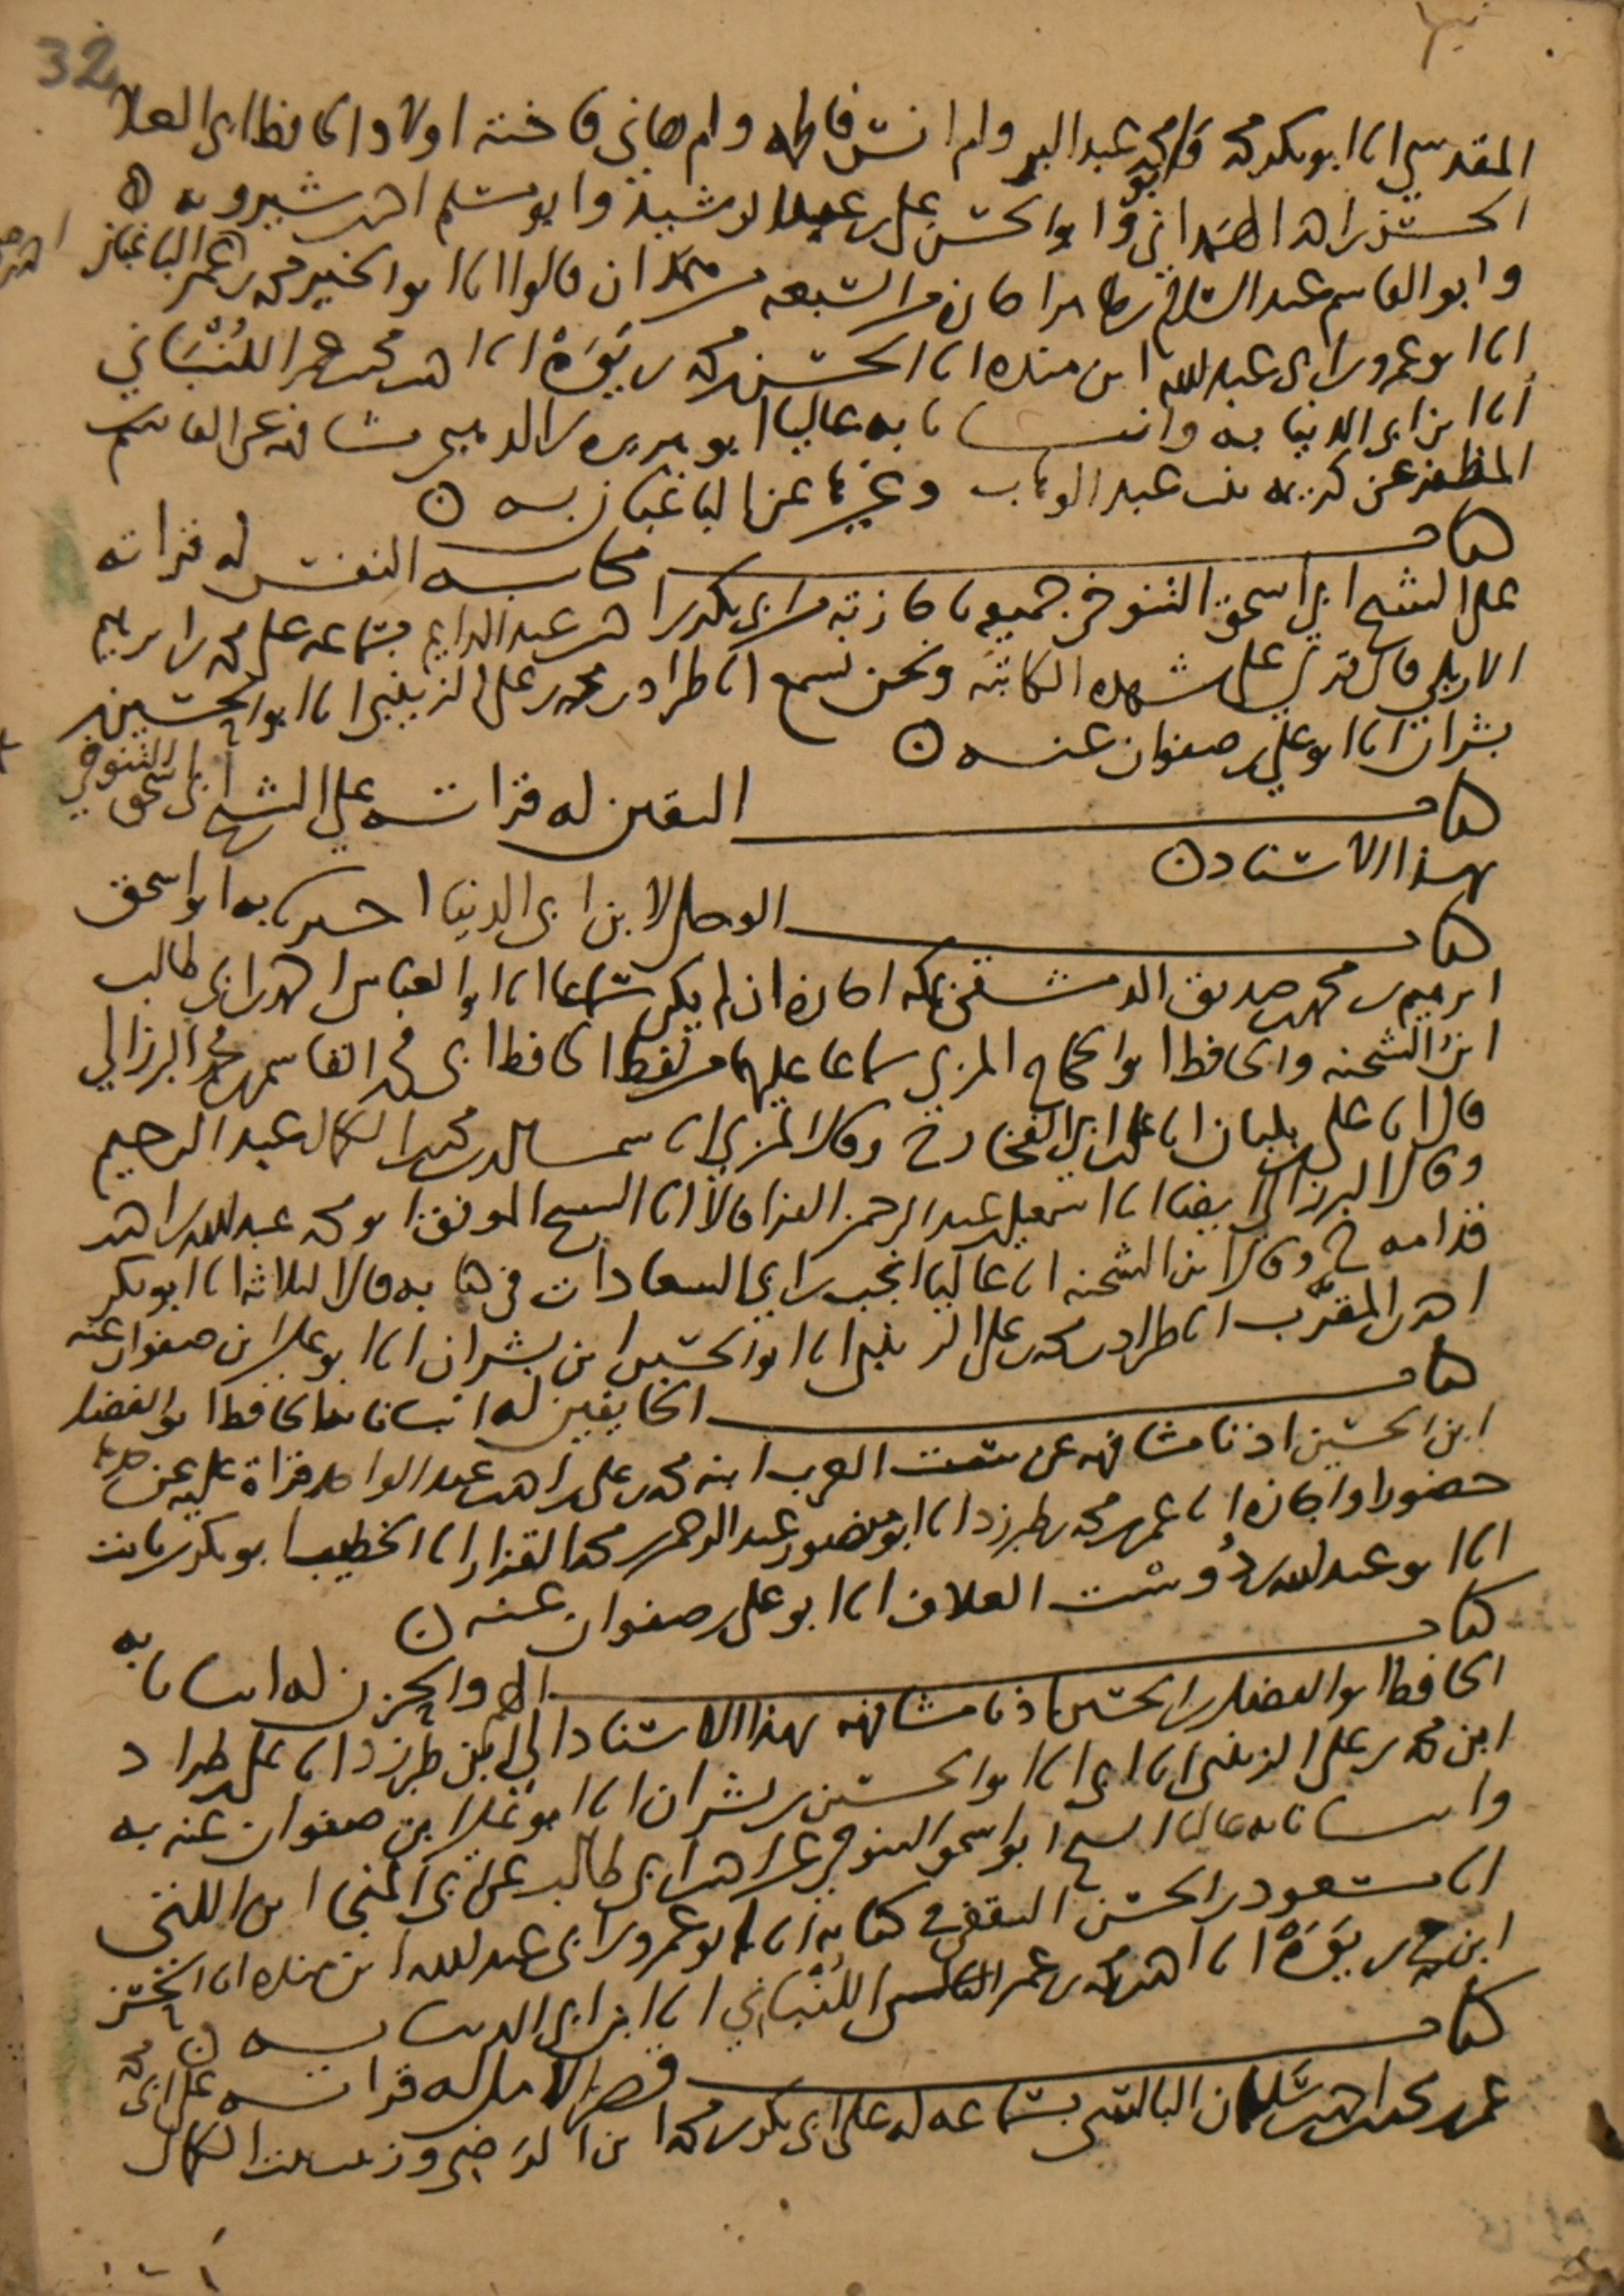 32
المقدسي انا ابو بكر محمد وابو محمد عبد البر وام انس فاطمه وام هاني فاخته اولاد الحافظ ابي العلا
الحسن بن احمد الهمداني وابو الحسن علي بن عبد الرشيد وابو مسلم احمد بن شيرويه
وابو القاسم عبد السلام بن اجازه من السبعه من همدان قالوا انا ابو الخير محمد بن احمد الباغبان
انا ابو عمرو بن ابي عبد الله ابن منده انا الحسن بن محمد بن يَوَهْ انا احمد بن محمد بن عمر اللُّنْبَاني
انا ابن ابي الدنيا به وانبانا به عاليا ابو هريره بن الذهبي مشافهه عن القاسم بن
المظفر عن كريمه بنت عبد الوهاب وغيرها عن الباغبان بسنده
كتاب محاسبه النفس له قراته
على الشيخ ابي اسحق التنوخي جميعه باجازته من ابي بكر بن احمد بن عبد الدايم بسماعه على محمد بن ابرهيم
الاربلي قال قري على شهده الكاتبه ونحن نسمع انا طراد بن محمد بن علي الزينبي انا ابو الحسين بن
بشران انا ابو علي بن صفوان عنه
كتاب اليقين له قراته على الشيخ ابي اسحق التنوخي
بهذا الاسناد
كتاب الوجل لابن ابي الدنيا اخبرنا به ابو اسحق
ابرهيم بن محمد بن صديق الدمشقي بمكه اجازه ان لم يكن سماعا انا ابو العباس احمد بن ابي طالب
ابن الشحنه والحافظ ابو الحجاج المزي سماعا عليهما بلفظ الحافظ ابي محمد القاسم بن محمد البرزالي
قالا انا علي بن بلبان انا علي بن ابي الفخار ح وقال المزي انا محمد بن الكمال عبد الرحيم
وقال البرزالي ايضا انا اسمعيل بن عبد الرحمن الفرا قالا انا الشيخ الموفق ابو محمد عبد الله بن احمد بن
قدامه ح وقال ابن الشحنه انا عاليا انجب بن ابي السعادات في كتابه قال الثلاثه انا ابو بكر
احمد بن المقرَّب انا طراد بن محمد بن علي الزينبي انا ابو الحسين ابن بشران انا ابو علي ابن صفوان عنه
كتاب الخايفين له انبانا به الحافظ ابو الفضل
ابن الحسين اذنا مشافهه عن ست العرب ابنه محمد بن علي بن احمد بن عبد الواحد قراة عليه عن جدها
حضورا واجازه انا عمر بن محمد بن طبرزد انا ابو منصور عبد الرحمن بن محمد القزاز انا الخطيب ابو بكر بن ثابت
انا ابو عبد الله بن دُوسْت العلاف انا ابو علي بن صفوان عنه
كتاب الهم والحزن له انبانا به
الحافظ ابو الفضل بن الحسين اذنا مشافهه بهذا الاسناد الى ابن طبرزد انا علي بن طراد
ابن محمد بن علي الزينبي انا ابي انا ابو الحسين بن بشران انا ابو علي ابن صفوان عنه به
وانبانا به عاليا الشيخ ابو اسحق التنوخي عن احمد بن ابي طالب عن ابي المنجا ابن اللتي
انا مسعود بن الحسن الثقفي في كتابه انا ابو عمرو بن ابي عبد الله ابن منده انا الحسن
ابن محمد بن يَوَهْ انا احمد بن محمد بن عمر اللُّنْبَاني انا ابن ابي الدنيا به
كتاب قصر الامل له قراته على ابي
عمر بن محمد بن احمد بن سلمان البالسي بسماعه له على ابي بكر بن محمد ابن الرضي وزينب بنت الكمال